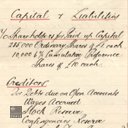 Capital & Liabilities
To Shareholders for Paid up Capital
Ordinary Shares of £1 each
10,000 6% Cumulative Preference
Shares of £10 each
Creditors
For Debts due on Open Accounts
Wages Accrued
Stock Reserve
Contingencies Reserve